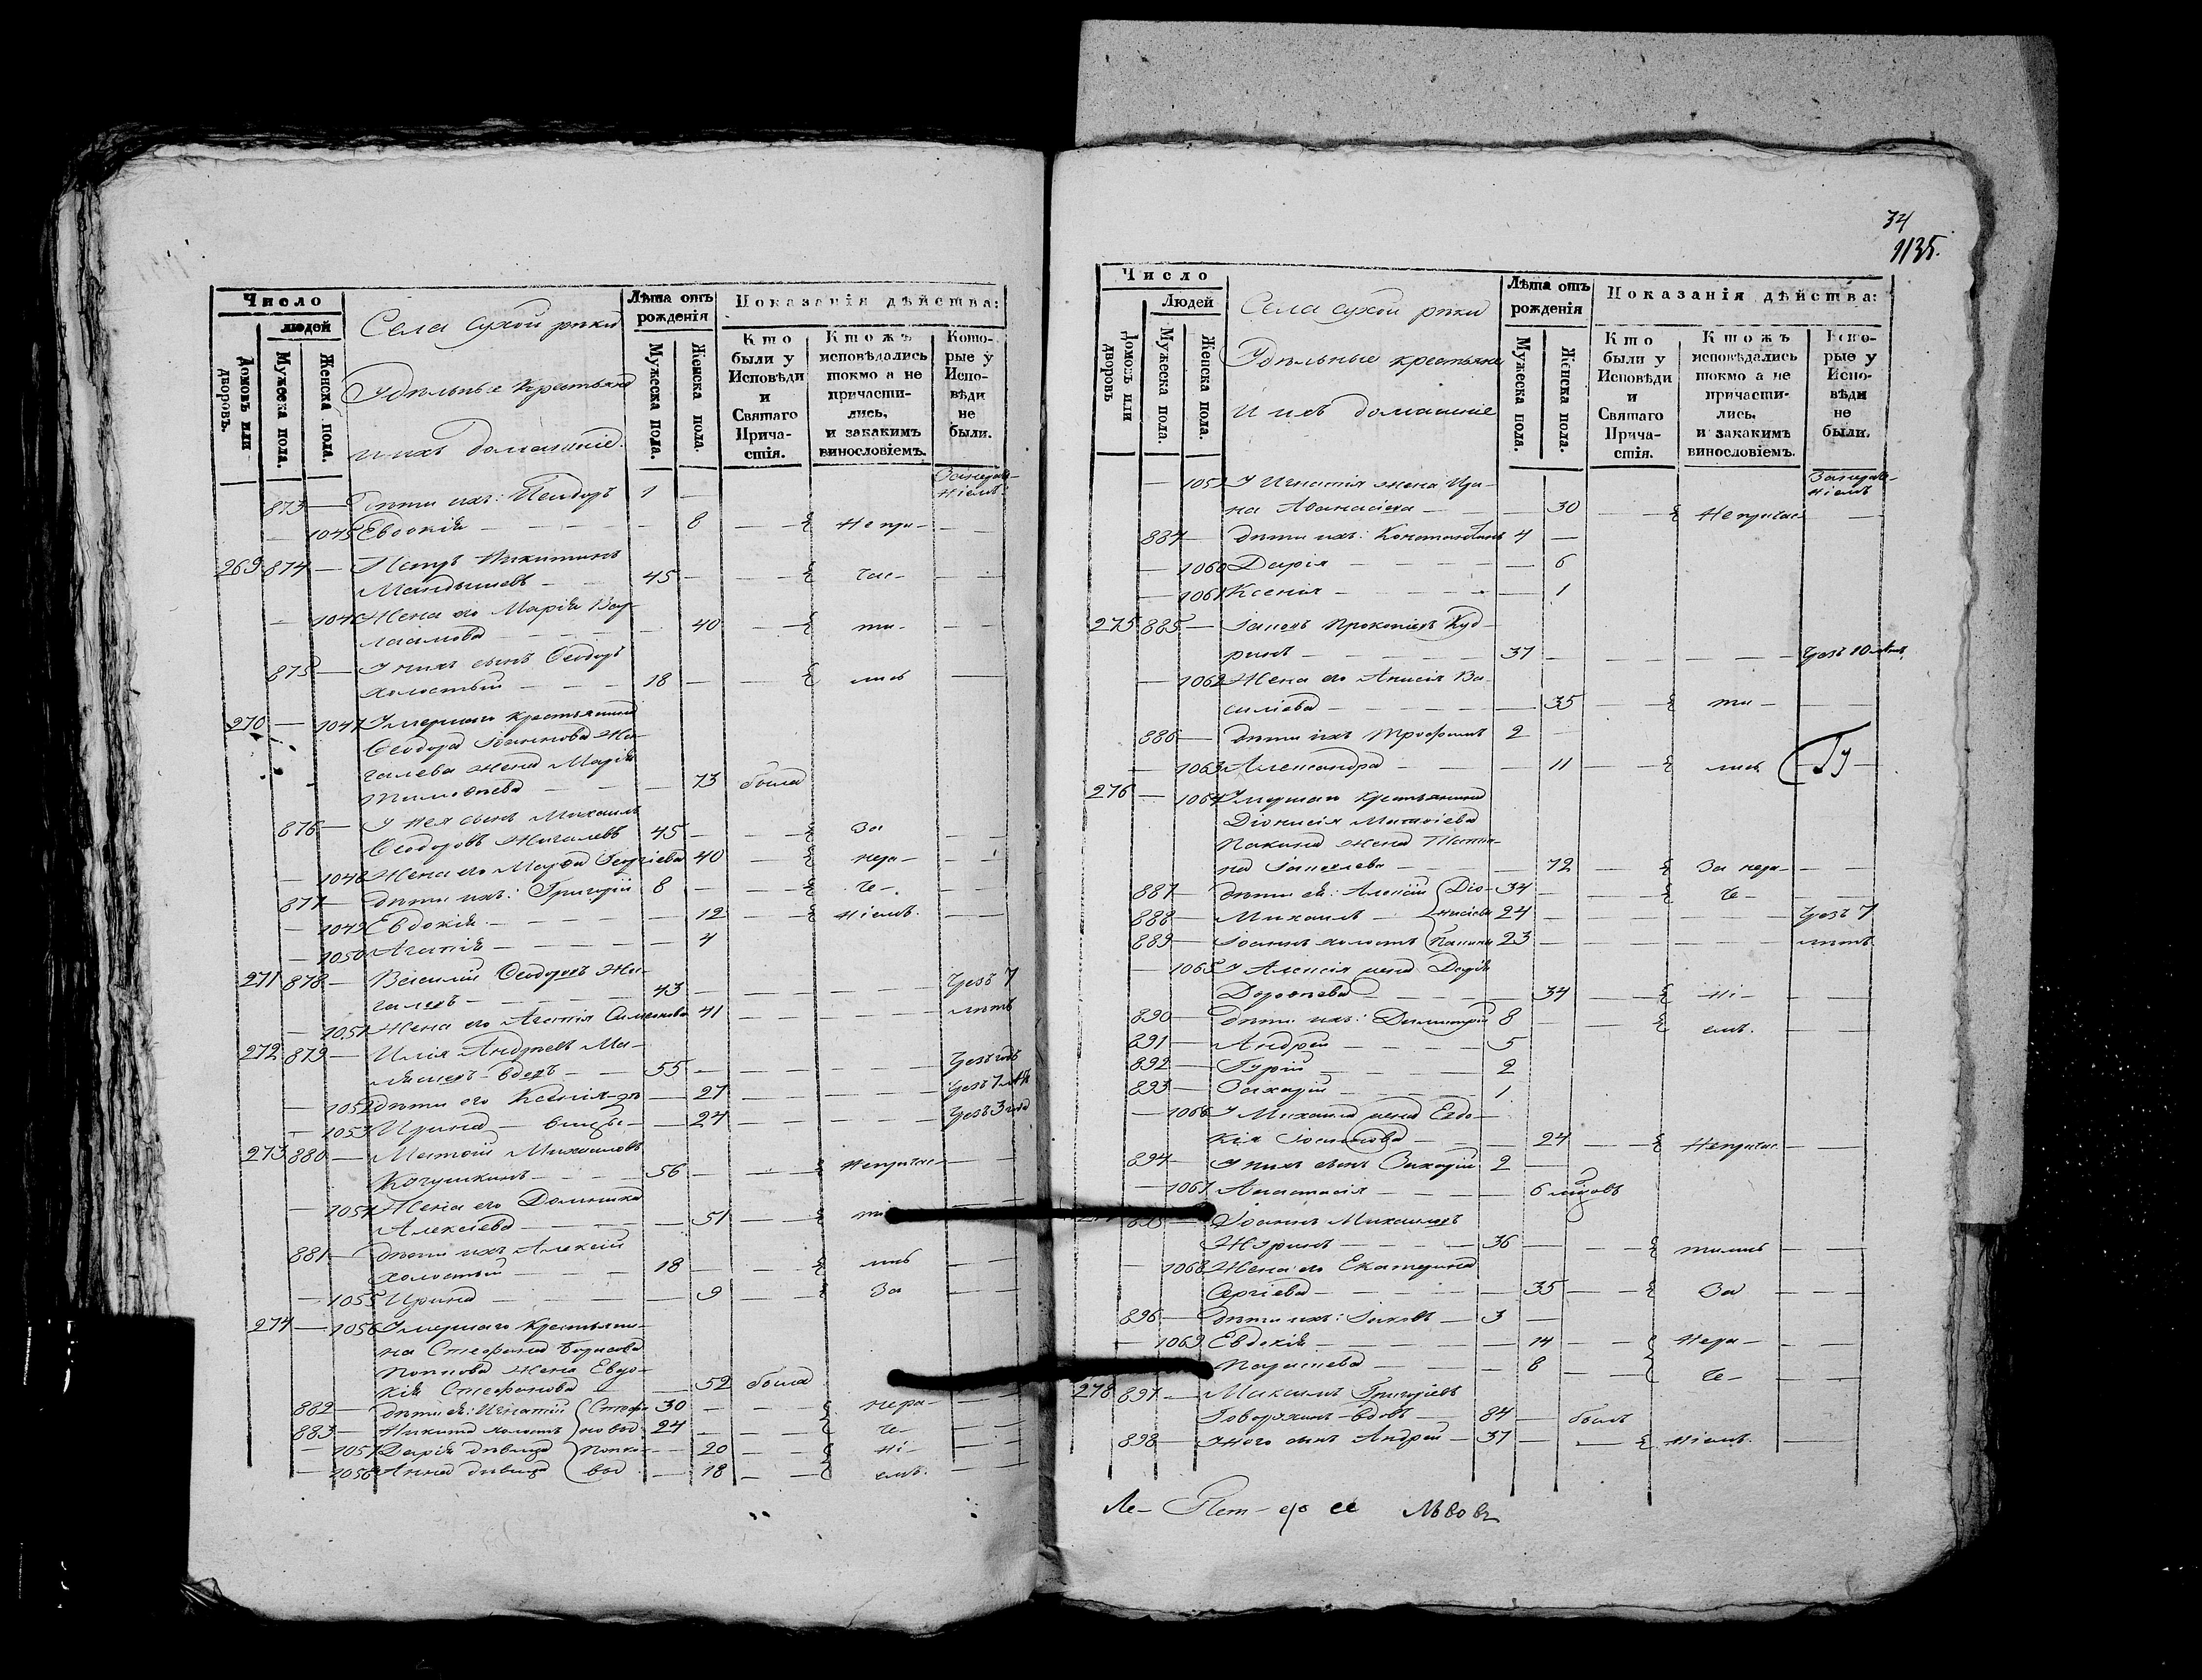 Число
людей
Домовъ или дворовъ.
Мужеска пола.
Женска пола.
Села Сухой рѣки
Удѣльные крестьяне
и ихъ домашніе.
Лѣта отъ рожденія
Мужеска пола.
Женска пола.
Показанія дѣйства:
Кто были у Исповѣди и Святаго Причастія.
Кто жъ исповѣдались токмо а не причастились, и закакимъ винословіемъ.
Которые у Исповѣди не были.
873 — дѣти ихъ: Ѳеодоръ 1 —
— 1045 Евдокія — 8 — Непри-
269 874 — Никитинъ
45 — час-
Жена его Марія Вар-
лаамова — 40 — ти-
875 — У нихъ сынъ Ѳеодоръ
холостый 18 — лись
270 — 1047 Умершаго крестьянина
Ѳеодора Іоаннова Жи-
галева жена Марія
Тимоѳеева — 73 была
876 — У нея сынъ Михаилъ
Ѳеодоровъ Жигалевъ 45 — За
— 1048 Жена его Марѳа Георгіева 40 — нера-
877 — дѣти ихъ: Григорій 8 — че-
— 1049 Евдокія — 12 — ніемъ.
— 1050 Агапія — 4
271 878 — Василій Ѳеодоровъ Жи-
галевъ — 43 — Чрезъ 7
— 1051 Жена его Агапія Симеонова 41 — лѣтъ
272 879 — Илія Андреевъ Ма-
вдовъ — 55 — Чрезъ годъ
— 1052 дѣти его Ксенія 27 — Чрезъ 7 лѣтъ
— 1053 Ирина — 24 — Чрезъ 3 года
273 880 — Матѳій Михаиловъ
Кочушкинъ — 56 — Непричас-
— 1054 Жена его Домника
Алексіева — 51 — ти
881 — дѣти ихъ Алексій
холостый — 18 — лись
— 1055 Ирина — 9 — За
274 — 1056 Умершаго крестьяни-
на Стефана Борисова
Попкова жена Евдо-
кія Стефанова — 52 была
882 — дѣти ея: Игнатій 30 — нера-
883 — Никита холостъ 24 — че-
— 1057 Дарія дѣвица 20 — ні-
— 1058 Анна дѣвица 18 — емъ.
34
1135.
Число
Людей
Домовъ или дворовъ
Мужеска пола.
Женска пола.
Села Сухой рѣки
Удѣльные крестьяне
и ихъ домашніе
Лѣта отъ рожденія
Мужеска пола.
Женска пола.
Показанія дѣйства:
Кто были у Исповѣди и Святаго Причастія.
Кто жъ исповѣдались токмо а не причастились, и закакимъ винословіемъ.
Которые у Исповѣди не были.
— У Игнатія жена Ири-
на Аѳанасіева — 30 — Непричас
884 — дѣти ихъ: Константинъ 4 —
— 1060 Дарія — 6
— 1061 Ксенія — 1
275 885 — Іаковъ Прокопіевъ Куд-
ринъ — 37 — Чрезъ 10 лѣтъ
— 1062 Жена его Анисія Ва-
силіева — 35 — ти-
886 — дѣти ихъ Трофимъ 2 —
— 1063 Александра — 11 — лись
276 — 1064 Умершаго крестьянина
Діонисія Матѳіева
Пакина жена Татія-
на Іаковлева — 72 — За нера-
887 — дѣти ея: Алексій 34 — че-
888 — Михаилъ 24 — Чрезъ 7
889 — Іоаннъ холостъ 23 — лѣтъ
1065 У Алексія жена Дарія
Дороѳеева — 34 — ні-
890 — дѣти ихъ: Димитрій 8 — емъ.
891 — Андрей — 5
892 — Гурій — 2
893 — Захарій — 1
— 1066 У Михаила жена Евдо-
кія — 24 — Непричас
894 — У нихъ сынъ Захарій 2 —
— 1067 Анастасія — 6 мѣсяцовъ
895 — Іоаннъ Михаиловъ
36 — тились
— 1068 Жена его Екатерина
Сергіева — 35 — За
896 — дѣти ихъ: Іаковъ — 3 —
— 1069 Евдокія — 14 — Нера-
Параскева — 8 — че-
278 897 — Максимъ Григоріевъ
вдовъ — 84 — былъ
898 — У него сынъ Андрей — 37 — ніемъ.
Львовъ